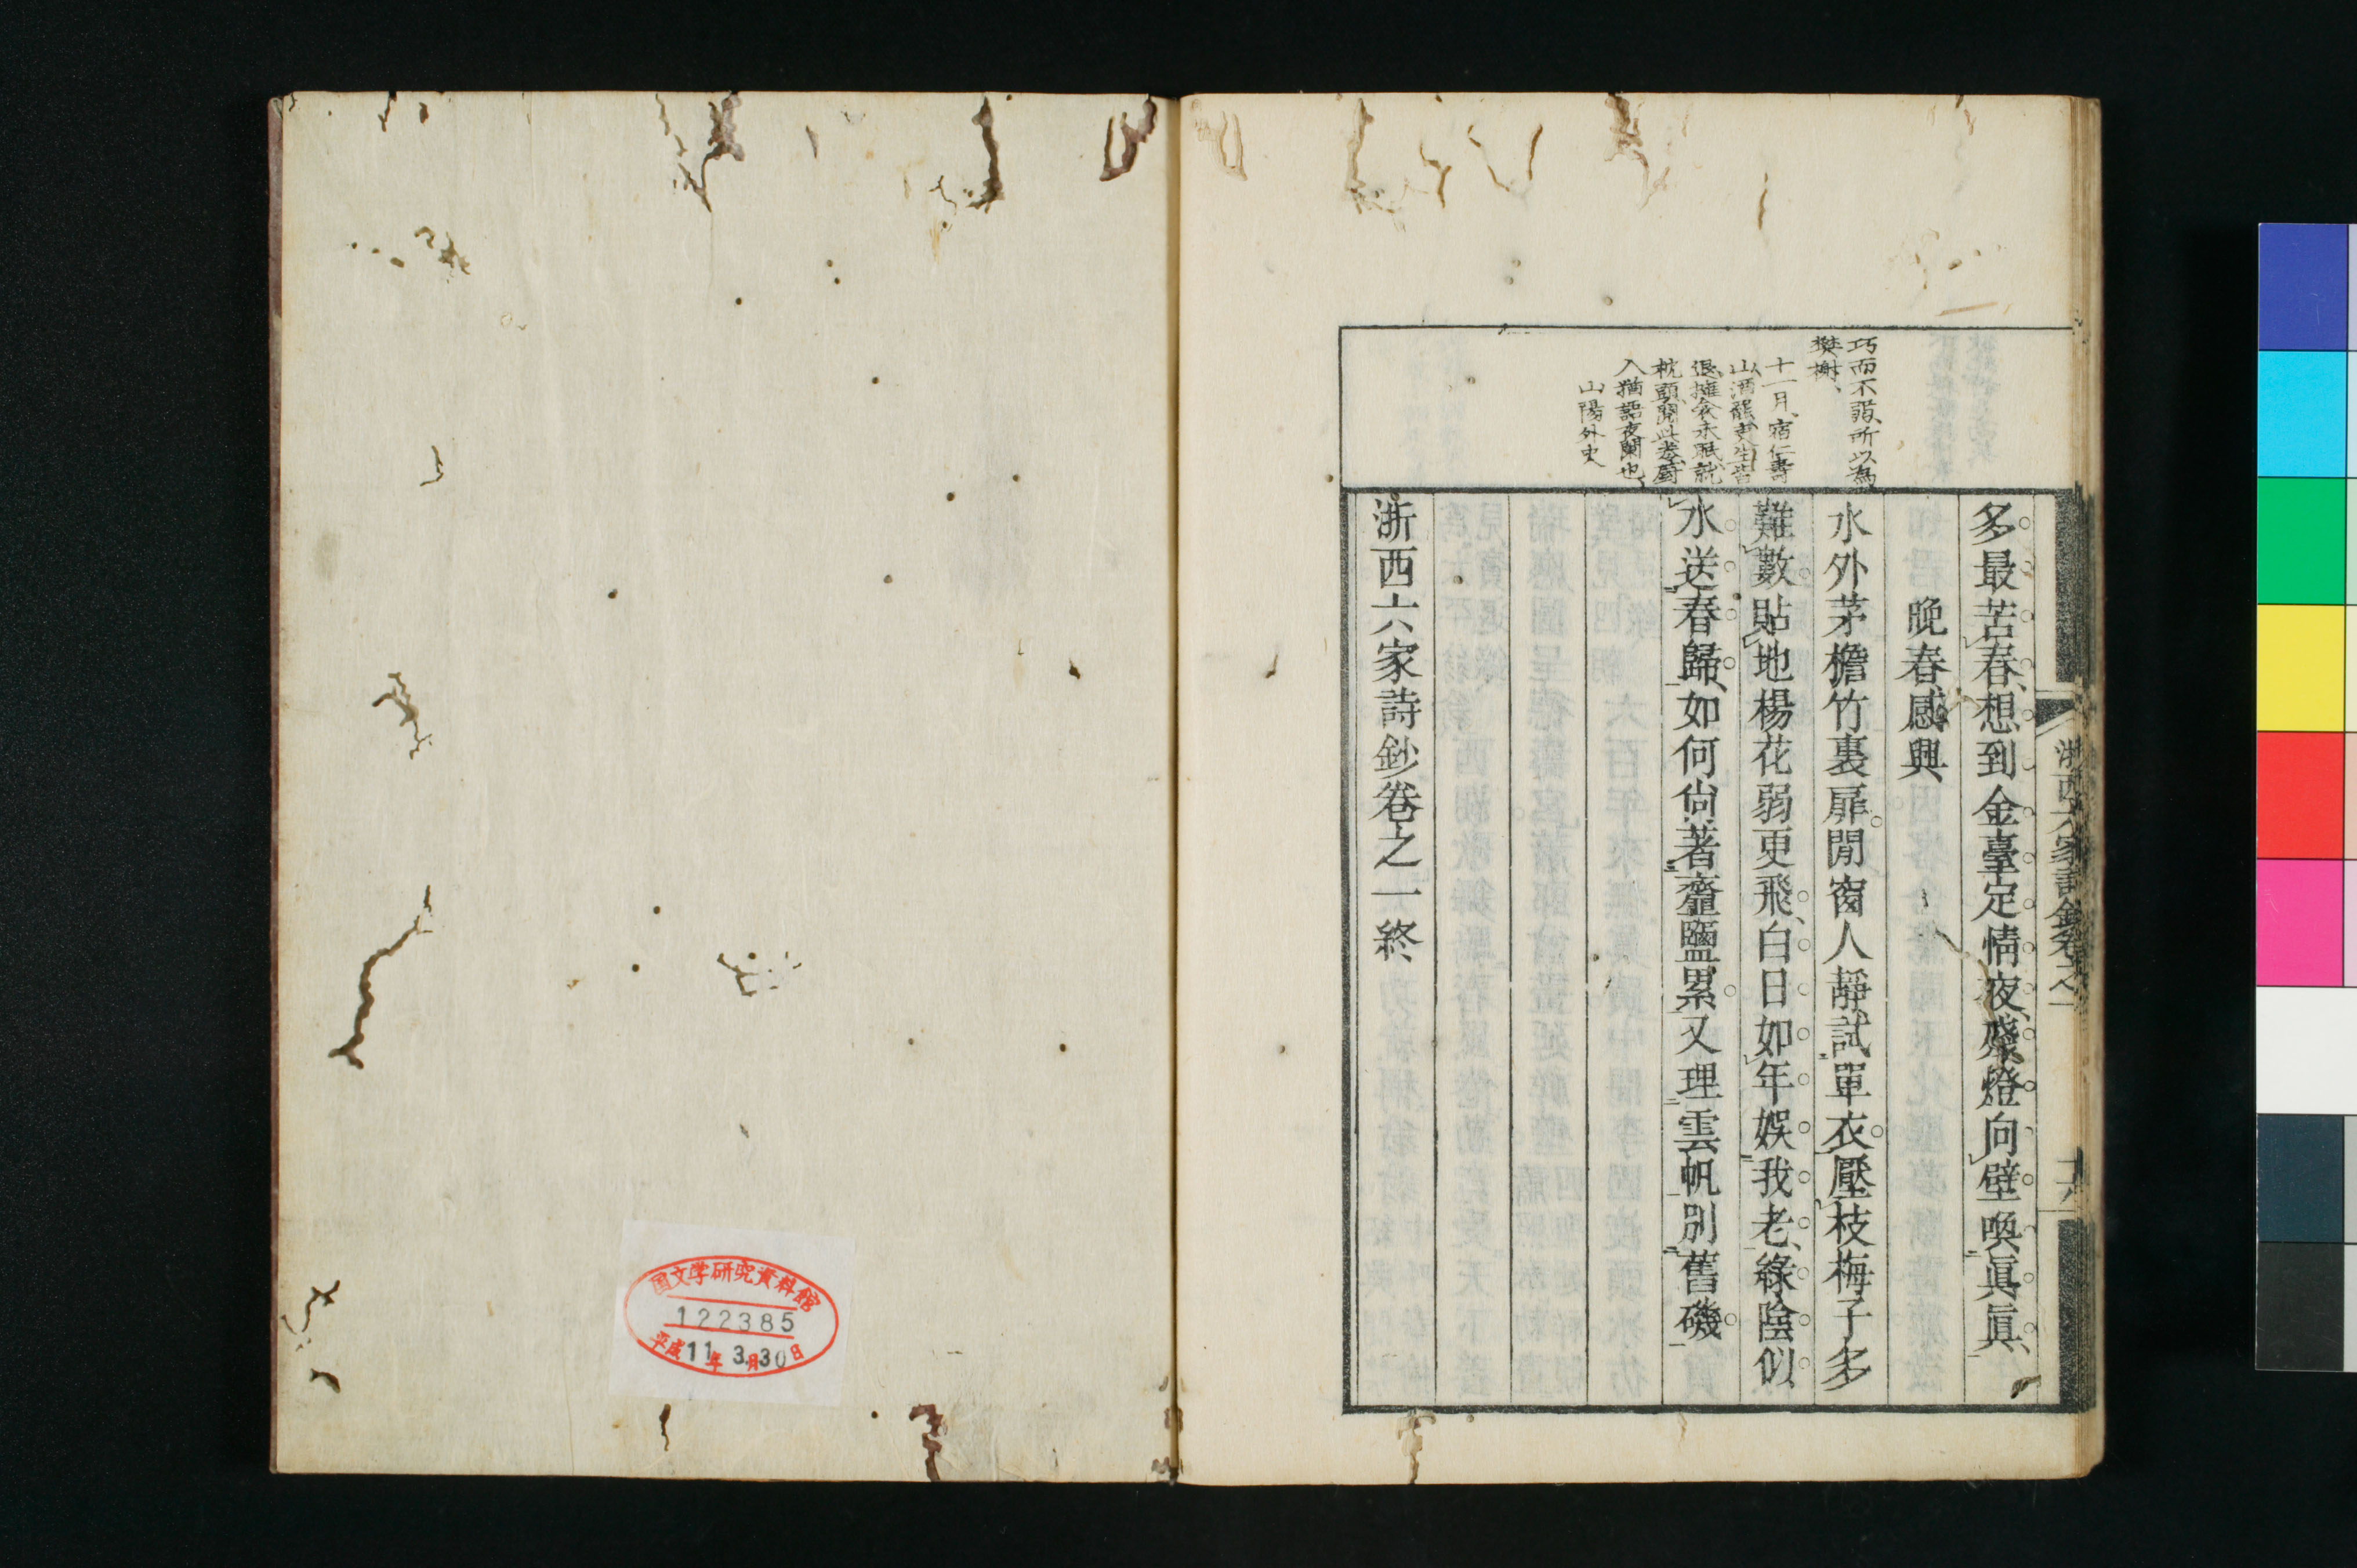 巧而不韻、所以為
樊榭、
十一月、宿仁壽
山、酒罷、更生皆
退、擁衾未眠、就
枕頭、閱此卷、厨
入猶語夜闌也
山陽外史
多最苦春、想到金臺定情夜、殘燈向壁喚眞眞、
晚春感興
水外茅檐竹裏扉閒窗人靜試單衣壓枝梅子多
難數貼地楊花弱更飛、白日如年娛我老、綠陰似
水送春歸、如何尙著虀鹽累又理雲帆別舊磯
浙西六家詩鈔卷之一終
浙西六家詩鈔卷之一
国文学研究資料館
122385
平成11年3月30日